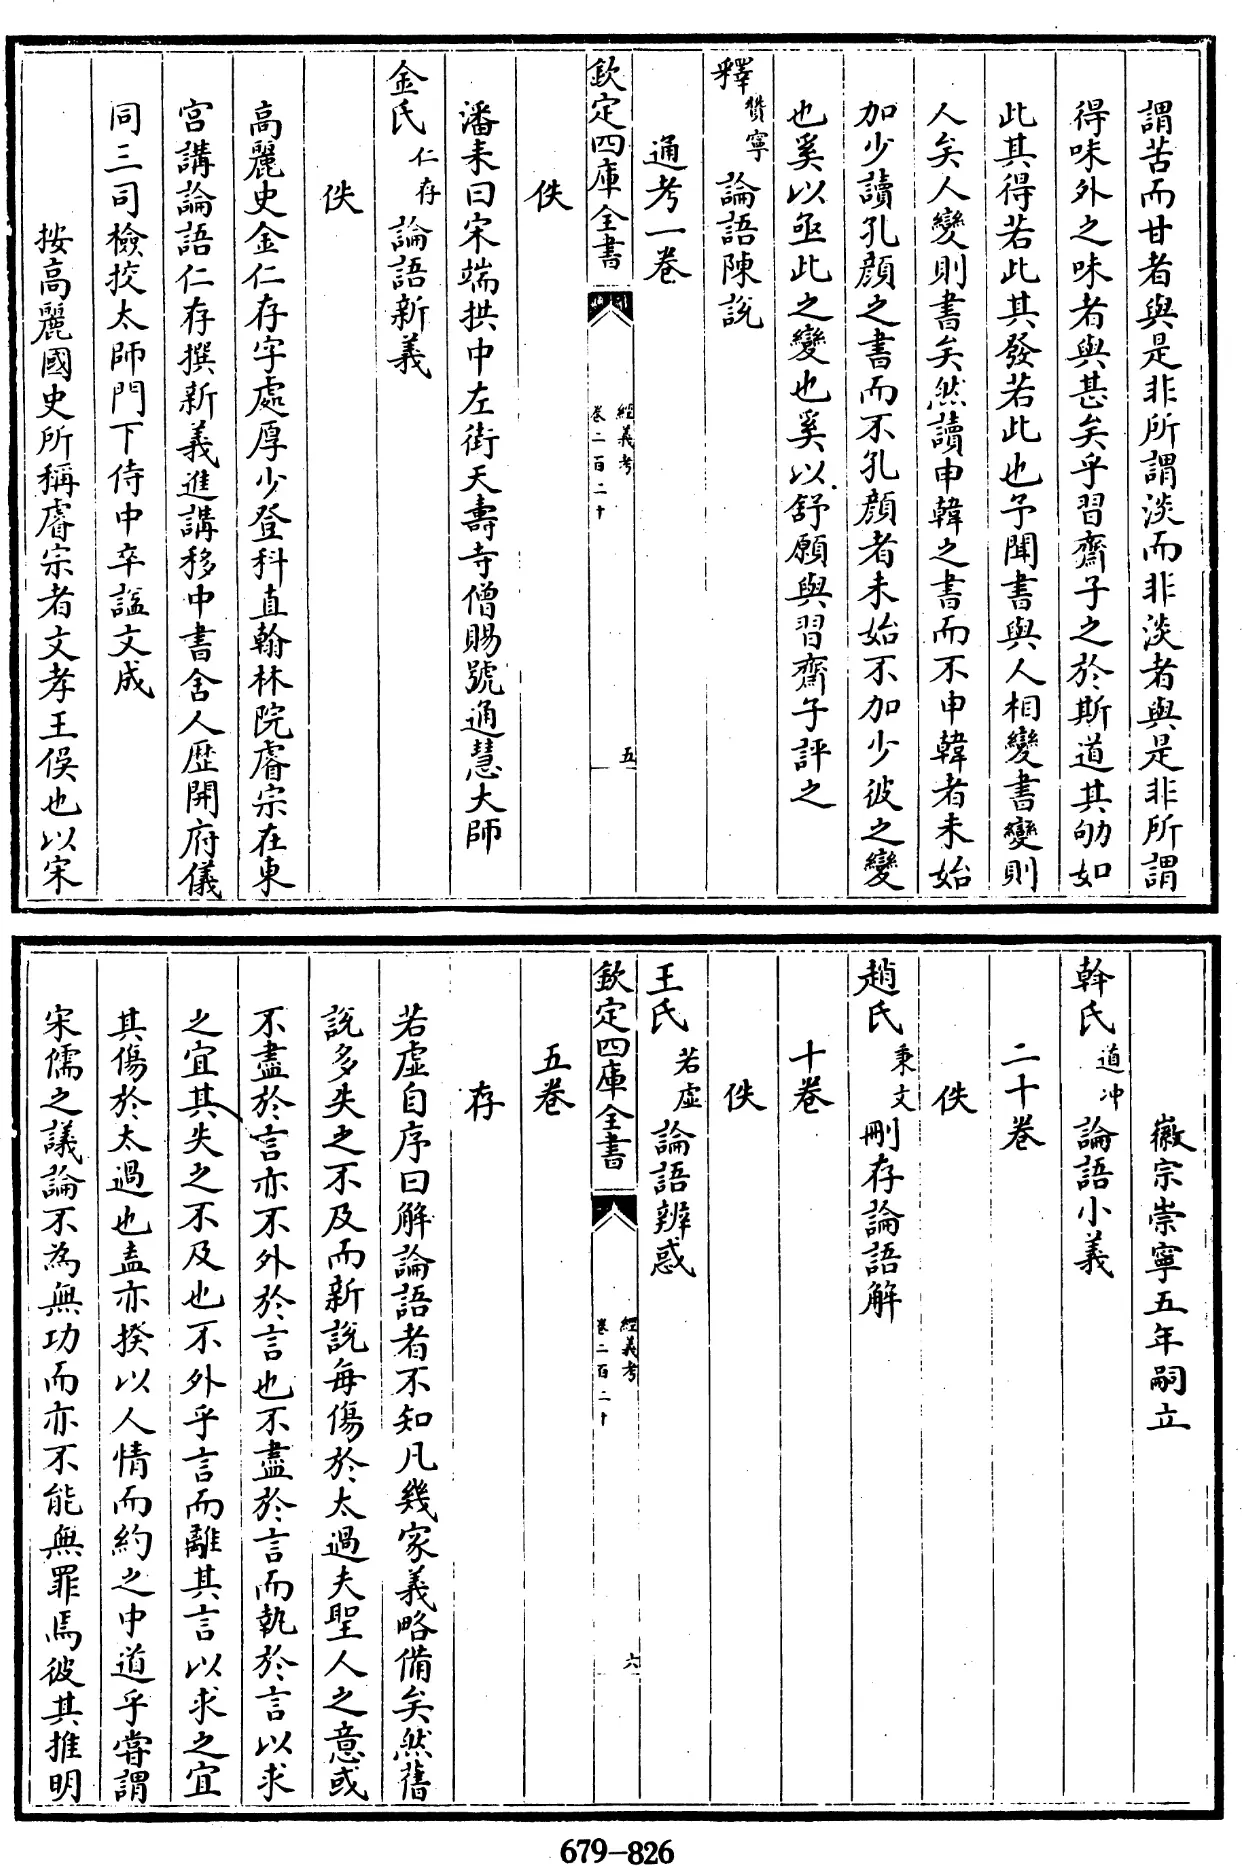 謂苦而甘者與是非所謂淡而非淡者與是非所謂
得味外之味者與甚矣乎習齋子之於斯道其劬如
此其得若此其發若此也予聞書與人相變書變則
人矣人變則書矣然讀申韓之書而不申韓者未始
加少讀孔顏之書而不孔顏者未始不加少彼之變
也奚以亟此之變也奚以舒願與習齋子評之
釋贊寧論語陳說
通考一卷
欽定四庫全書
經義考
卷二百二十
五
佚
潘耒曰宋端拱中左街天壽寺僧賜號通慧大師
金氏仁存論語新義
佚
高麗史金仁存字處厚少登科直翰林院睿宗在東
宫講論語仁存撰新義進講移中書舍人歷開府儀
同三司檢挍太師門下侍中卒諡文成
按高麗國史所稱睿宗者文孝王俁也以宋
徽宗崇寧五年嗣立
斡氏道冲論語小義
二十卷
佚
趙氏秉文刪存論語解
十卷
佚
王氏若虛論語辨惑
欽定四庫全書
經義考
卷二百二十
六
五卷
存
若虛自序曰解論語者不知凡幾家義略備矣然舊
說多失之不及而新說每傷於太過夫聖人之意或
不盡於言亦不外於言也不盡於言而執於言以求
之宜其失之不及也不外乎言而離其言以求之宜
其傷於太過也盍亦揆以人情而約之中道乎嘗謂
宋儒之議論不為無功而亦不能無罪焉彼其推明
679-826